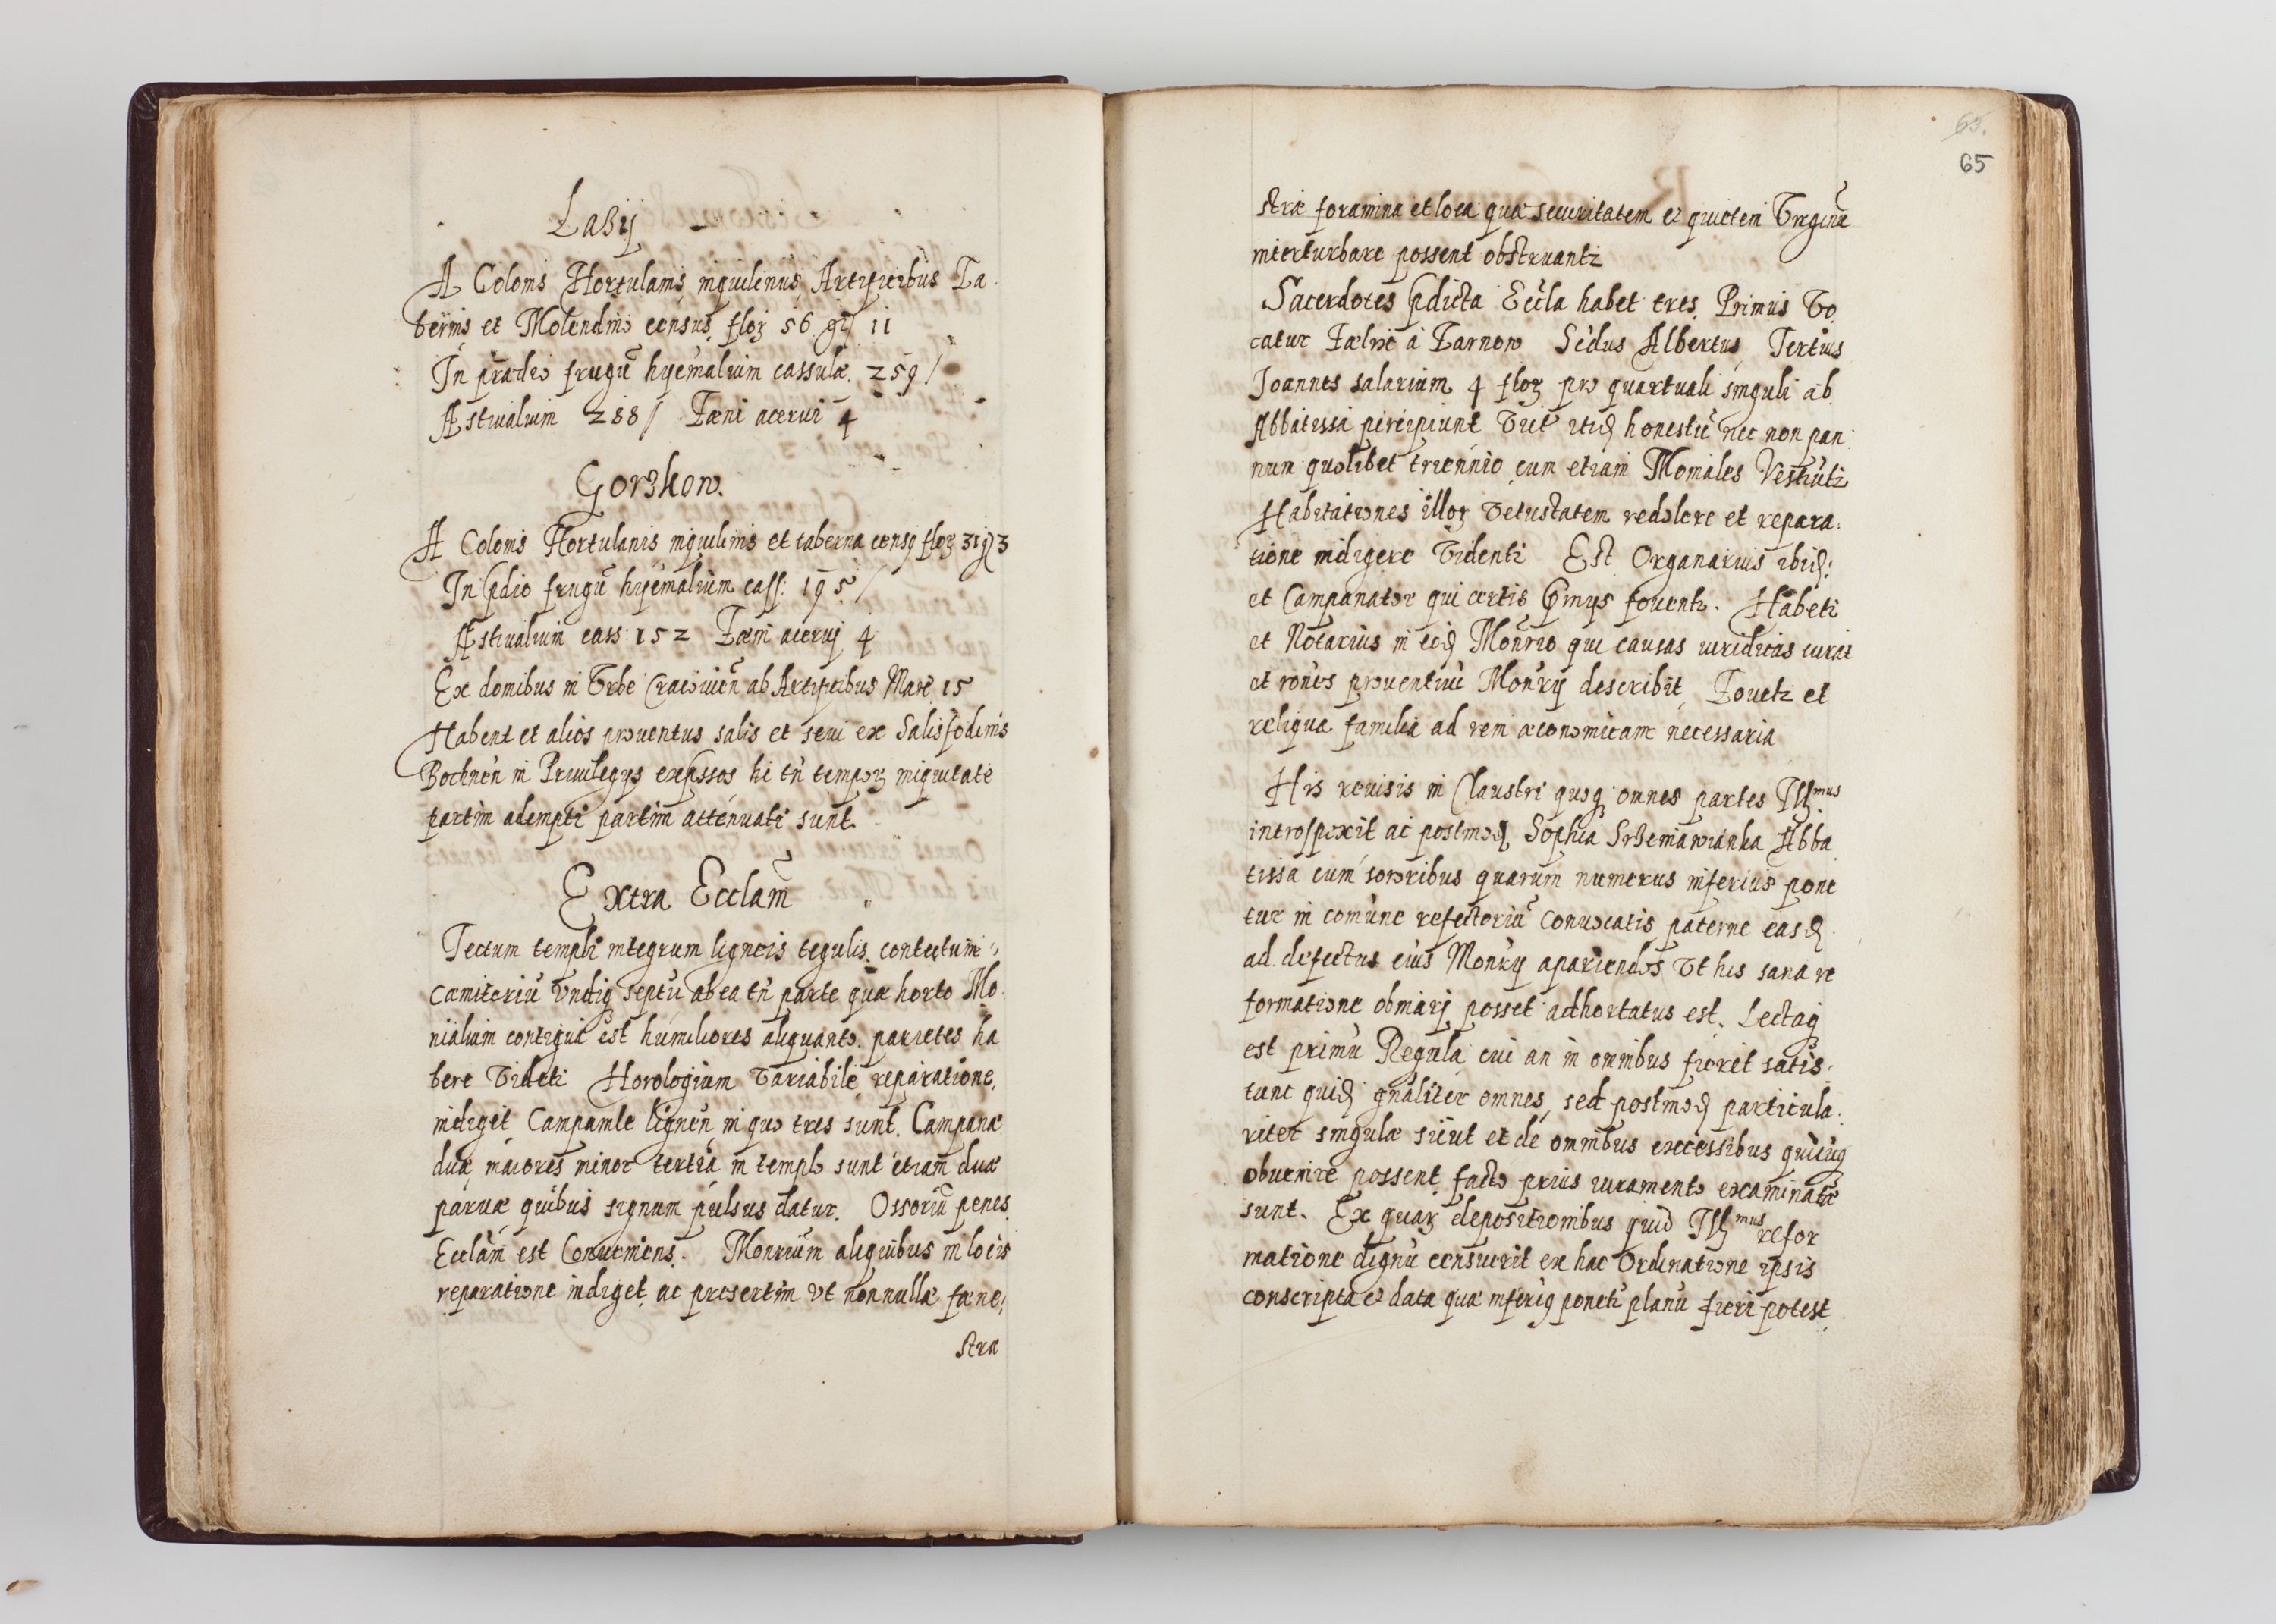 Lazÿ
A Colonis Hortulanis inquilinus Artificibus Ta
bernis et Molendino census flor 56 gr 11
In prædio frugũ hyemalium cassulæ 259 /
Æstiualium 288 / Fæni acerui 4
Gorzkow.
A Colonis Hortulanis inquilinis et taberna
In pdio frugũ hyemalium cass: 195 /
Æstiualium cass: 152 Fæni acerui 4
Ex domibus in Vrbe Cracouień ab Artificibus Marc 15
Habent et alios prouentus salis et seui ex Salisfodinis
Bochneń in Priuilegijs expssos hi tñ tempor iniquitate
partim adempti partim attenuati sunt.
Extra Ecclam̃
Tectum templi integrum ligneis tegulis contectum
Cæmiteriũ vndiq septũ ab ea tñ parte quæ horto Mo
nialium contigua est humiliores aliquanto parietes ha
bere videti Horologium variabile reparatione
indiget Campanile ligneũ in quo tres sunt Campanæ
duæ maiores minor tertia in templo sunt etiam duæ
paruæ quibus signum pulsus datur. Ossoriũ penes
Ecclam̃ est Conueniens. Monrium aliquibus in locis
reparatione indiget ac præsertim vt nonnullæ fæne,
stra
65
stræ foramina et loca quæ securitatem et quietem Virginũ
interturbare possent obstruanti
Sacerdotes pdicta Eccla habet tres Primus vo
catur Fælix à Tarnow Scďus Albertus Tertius
Joannes salarium 4 flor pro quartuali singuli ab
Abbatissa percipiunt honestũ nec non pan
num quolibet triennio cum etiam Moniales Vestiuti
Habitationes illor vetustatem redolere et repara
tione indigere videnti Est Organarius ibid:
et Campanator qui certis fouenti. Habeti
et Notarius in eod Monrio qui causas iuridicas curat
et rones prouentuũ Monrij describit Foueti et
reliqua familia ad rem æconomicam necessaria
His reuisis in Claustri quoq omnes partes Illmus
introspexit ac postmod Sophia Srzemawianka Abba
tissa cum sororibus quarum numerus inferius pone
tur in comune refectoriũ conuocatis paterne easd
ad defectus eius Monrij apariendos Vt his sana re
formatione obuiarj posset adhortatus est. Lectaq
est primũ Regula cui an in omnibus fieret satis
tunc quid gñaliter omnes sed postmod particula
riter singulæ sicut et de omnibus excessibus quicuq
obuenire possent facto prius iuramento examinatæ
sunt. Ex quar depositionibus quid Illmus refor
matione dignũ censuerit ex hac Ordinatione ipsis
conscripta et data quæ inferiq poneti planũ fieri potest